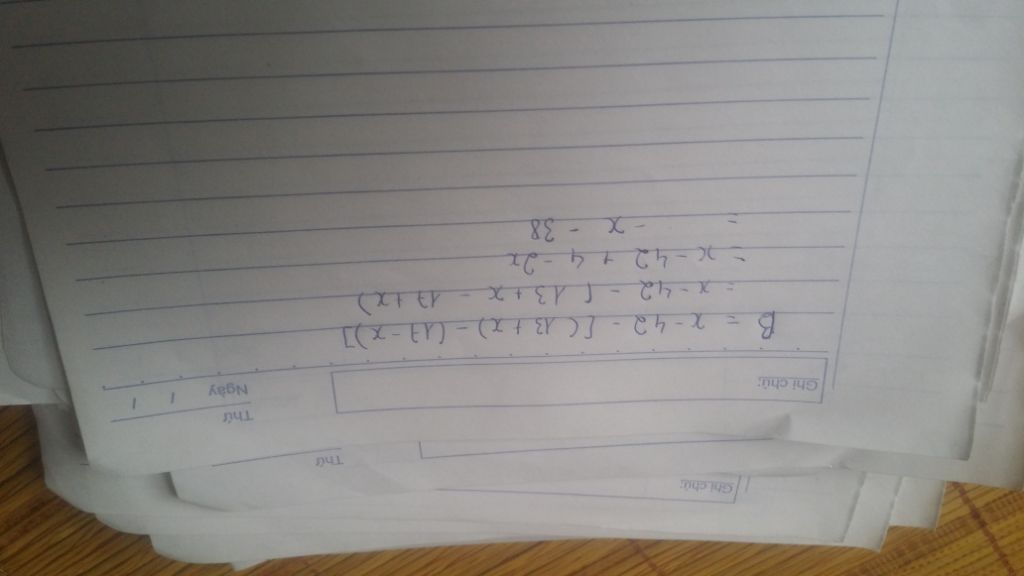 Thứ
Ghi chú:
Thứ
Ngày / /
Ghi chú:
B = x - 42 - [(13+x) - (17-x)]
= x - 42 - (13+x - 17+x)
= x - 42 + 4 - 2x
= - x - 38